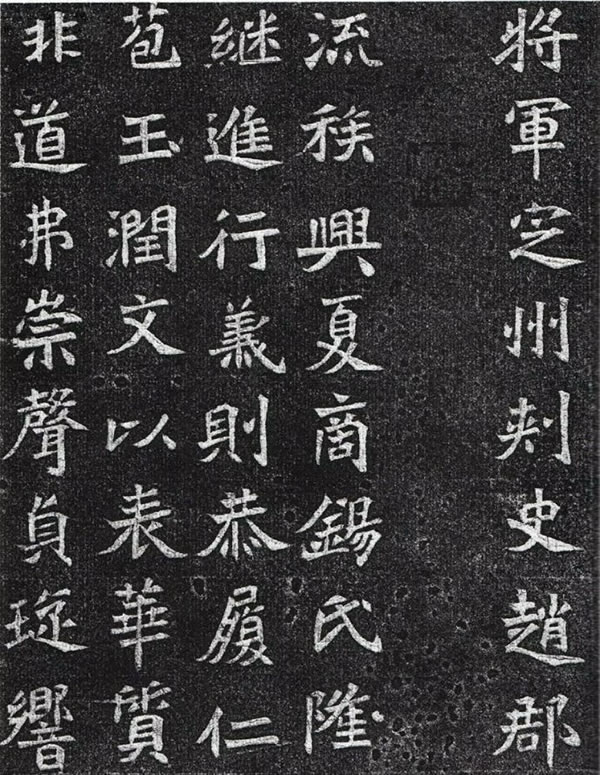 將軍定州刾史趙郡
流秩興夏商錫氏隆
継進行義則恭履仁
苞玉潤文以表華質
非道弗崇聲貞琁響